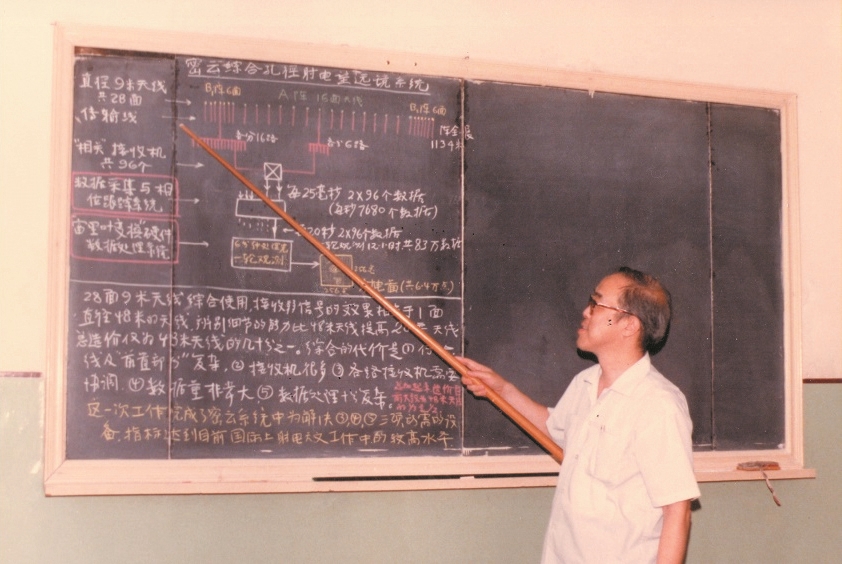 密云综合孔径射电望远镜系统
直径9米天线
共28面
传输线
"相关"接收机
共96个
数据采集与相
系统
"富里叶变换"硬件
数据处理系统
B₁阵6面
A阵 16面天线
B₂阵6面
各分16路
各分6路
每25毫秒 2×96个数据
(每秒7680个数据)
每20秒 2×96个数据
一轮观测12小时共83万数据
一轮观测
(共6.4万点)
28面9米天线综合使用,接收射信号的效果相当于1面
直径48米的天线,辨别细节的能力比48米天线提高20
总造价仅为48米天线的几十分之一。综合的代价是①传
线及"前直部分"复杂。②接收机很多③各路接收机需要
协调。④数据量非常大⑤数据处理十分复杂。
这一次工作完成了密云系统中为解决③,④,⑤三项所需的设
备,指标达到目前国际上射电天文工作中的较高水平